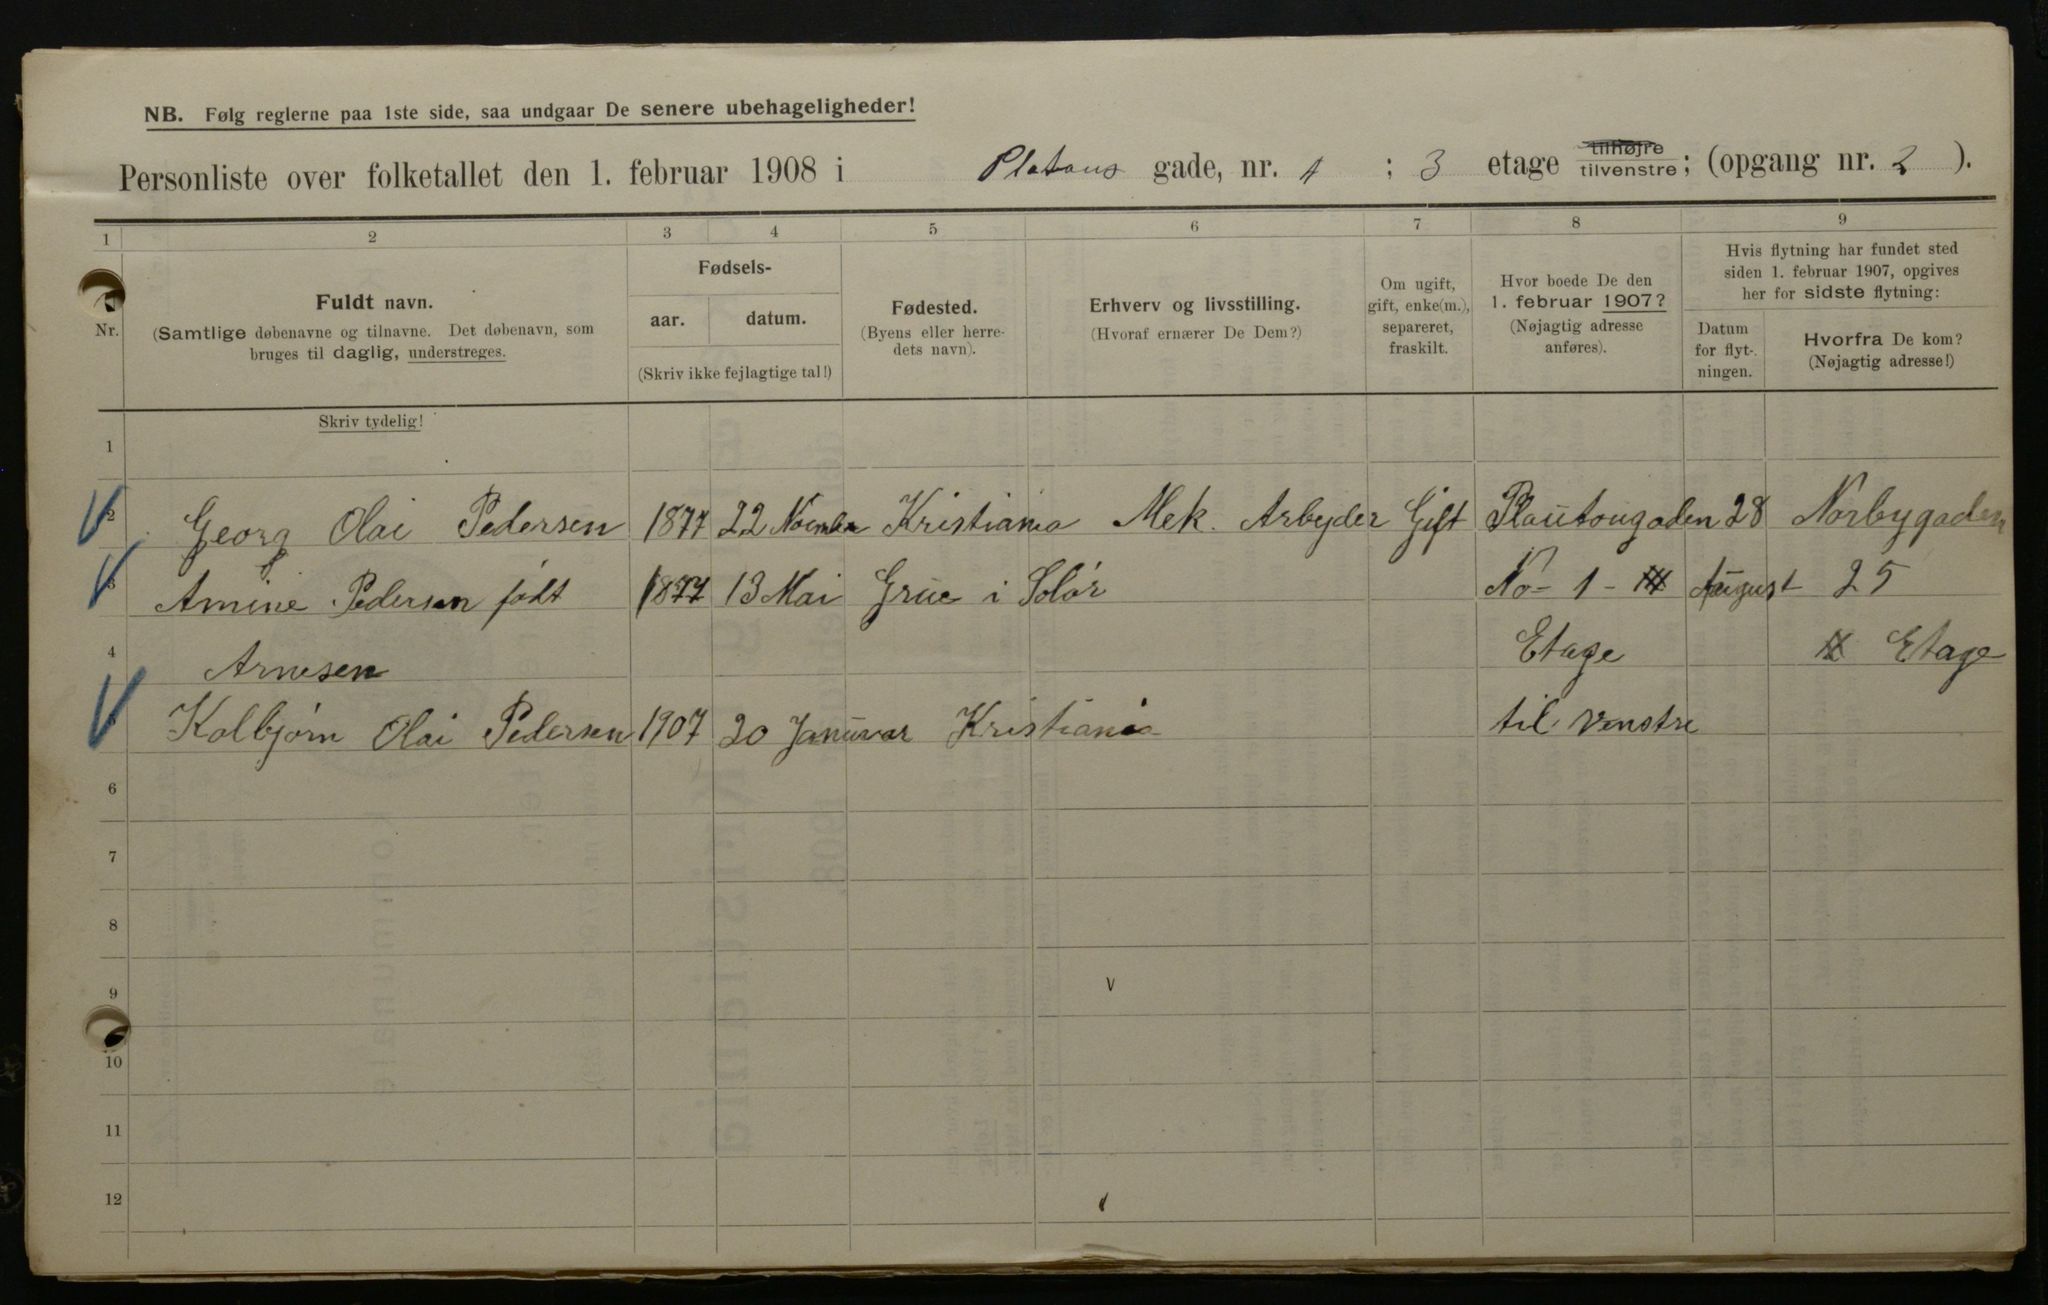 NB. Følg reglerne paa 1ste side, saa undgaar De senere ubehageligheder!
Personliste over folketallet den 1. februar 1908 i Platous gade, nr. 1 ; 3 etage tilhøjre tilvenstre; (opgang nr. 2 ).
1 2 3 4 5 6 7 8 9
Nr.
Fuldt navn.
(Samtlige døbenavne og tilnavne. Det døbenavn, som
bruges til daglig, understreges.
Fødsels-
aar. datum.
(Skriv ikke fejlagtige tal!)
Fødested.
(Byens eller herre-
dets navn).
Erhverv og livsstilling.
(Hvoraf ernærer De Dem?)
Om ugift,
gift, enke(m.),
separeret,
fraskilt.
Hvor boede De den
1. februar 1907?
(Nøjagtig adresse
anføres).
Hvis flytning har fundet sted
siden 1. februar 1907, opgives
her for sidste flytning:
Datum
for flyt-
ningen.
Hvorfra De kom?
(Nøjagtig adresse!)
Skriv tydelig!
1
2 Georg Olai Pedersen 1877 22 November Kristiania Mek. Arbejder Gift Plautougaden 28 Norbygaden
3 Amine Pedersen født 1877 13 Mai Grue i Solør No - 1 - August 25
4 Arnesen Etage Etage
5 Kolbjørn Olai Pedersen 1907 20 Januvar Kristiania til venstre
6
7
8
9
10
11
12